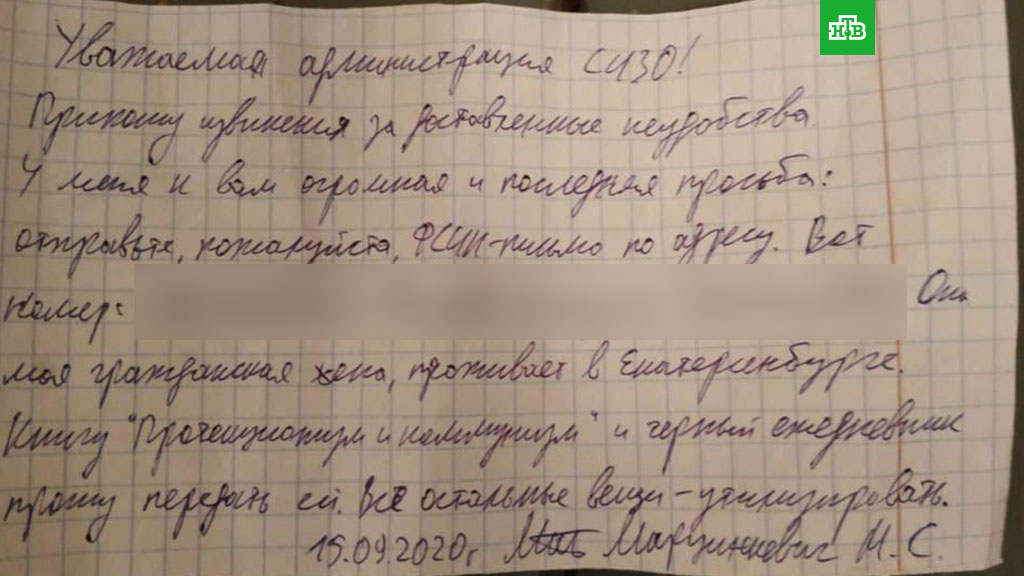 НТВ
Уважаемая администрация СИЗО!
Приношу извинения за доставленные неудобства.
У меня к вам огромная и последняя просьба:
отправьте, пожалуйста, ФСИН-письмо по адресу. Вот
номер: Она
моя гражданская жена, проживает в Екатеринбурге.
Книгу "Протекционизм и коммунизм" и черный ежедневник
прошу передать ей. Всё остальные вещи - утилизировать.
15.09.2020г Марцинкевич М.С.